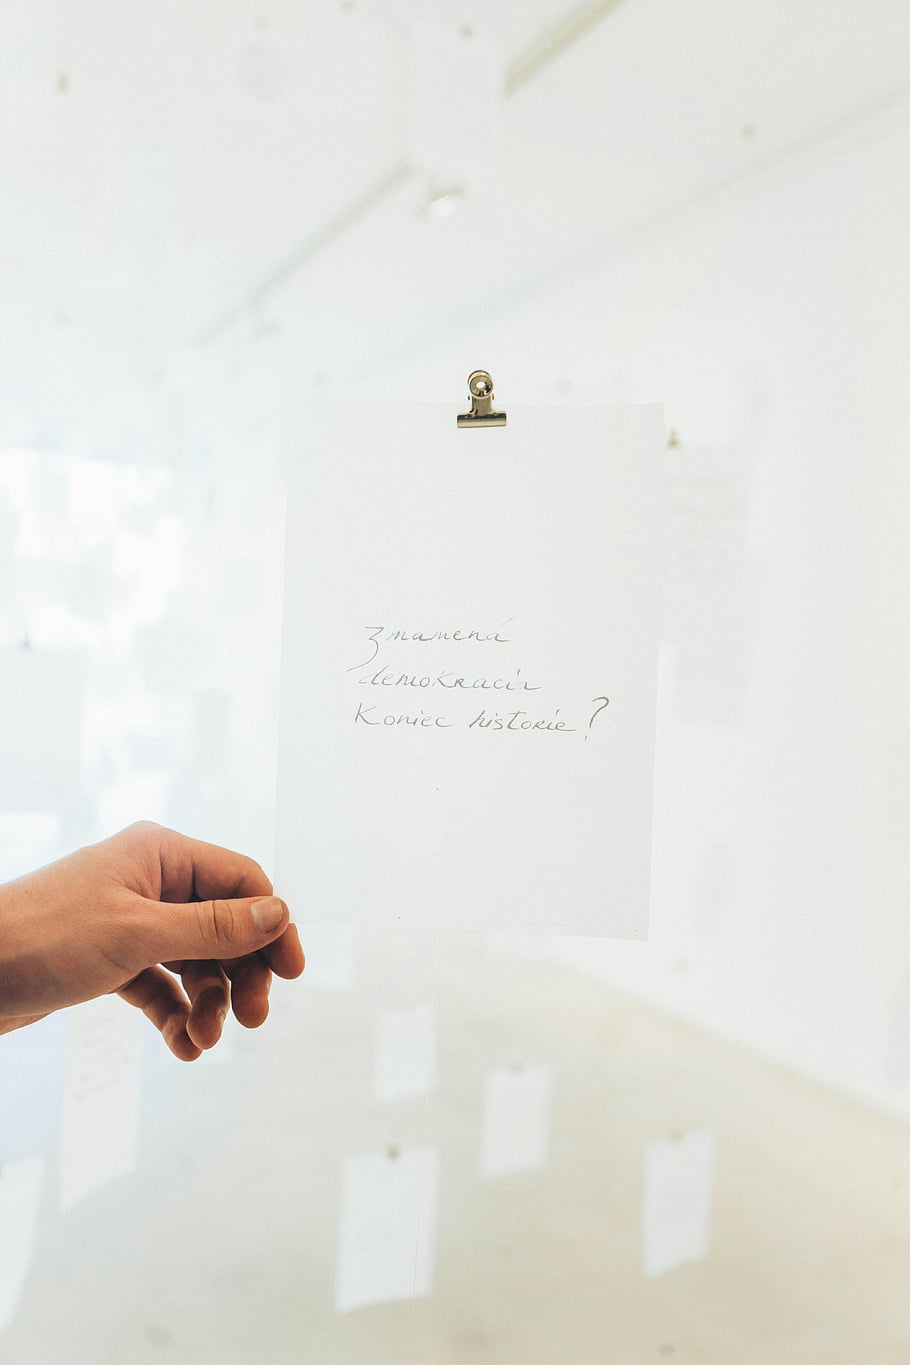 Znamená
demokracia
koniec historie?